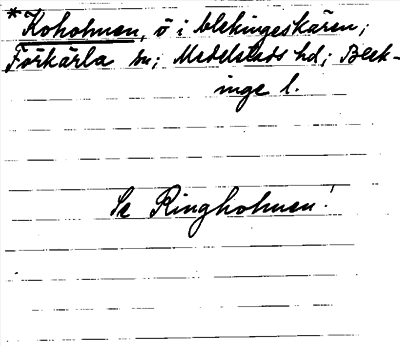 * Koholmen, ö i blekingeskären;
Förkärla sn; Medelstads hd; Blek-
inge l.
Se Ringholmen!